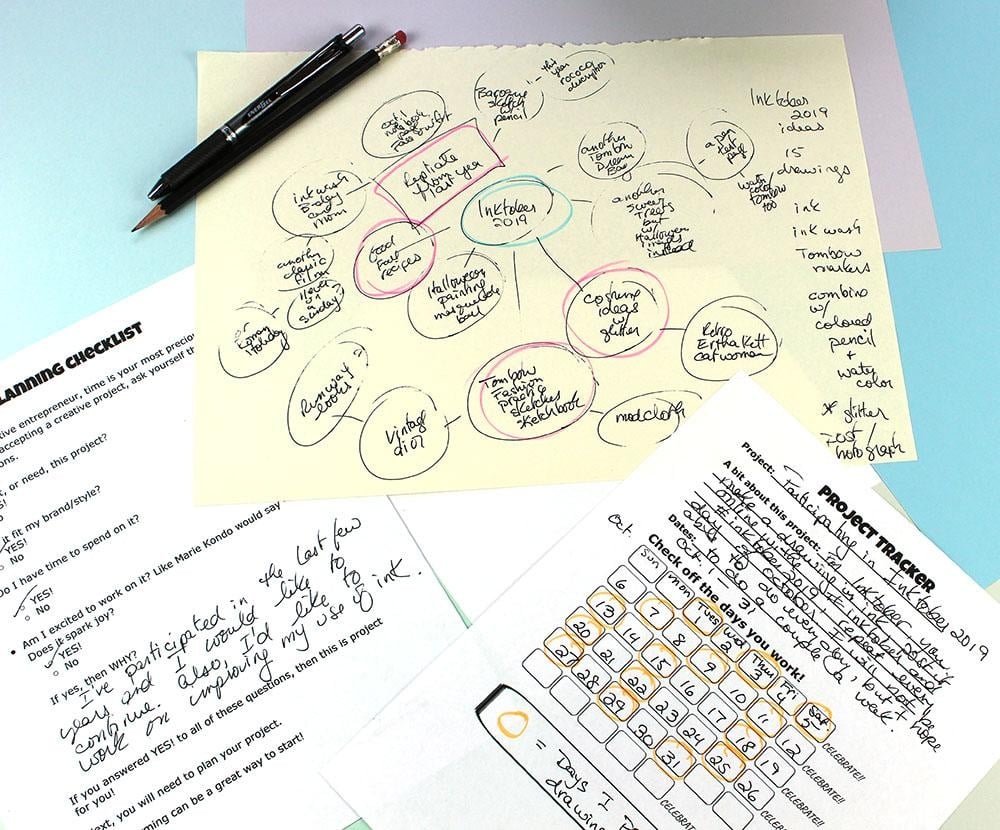 ENERGEL
Inktober
2019
ideas
15
drawings
ink
ink wash
Tombow
markers
combine
w/
colored
pencil
+
water
color
* glitter
Baroque
sketch w/
pencil
this
year
rococo
another
Tombow
Dream
Bag
a pen
test
page
water
color
Tombow
too
Replicate
from
last year
ink wash
B-day
and
mom
Inktober
2019
another
sweet
treats
but
w/
Halloween
images
instead
Good
Fall
recipes
another
classic
film
never
on a
sunday?
or
Roman
Holiday
Halloween
painting
masquerade
ball
costume
ideas w/
glitter
Retro
Ertha Kett
catwoman
Runway
looks
Vintage
dior
Tombow
Fashion
practice
sketches
sketchbook
modcloth
LANNING CHECKLIST
tive entrepreneur, time is your most precio
accepting a creative project, ask yourself th
ons.
t, or need, this project?
ES!
o
it fit my brand/style?
YES!
No
Do I have time to spend on it?
YES!
No
Am I excited to work on it? Like Marie Kondo would say
Does it spark joy?
YES!
No
If yes, then WHY?
I've participated in the last few
years and I would like to
continue. Also, I'd like to
work on improving my use of ink.
If you answered YES! to all of these questions, then this is project
for you!
ext, you will need to plan your project.
ming can be a great way to start!
PROJECT TRACKER
Project: Participating in Inktober 2019
A bit about this project: For Inktober, you
make a drawing in ink, post
online w/ the
#inktober2019 #inktober and
day of October. I will not be
able to do every day, but I hope
to do a couple a week.
Dates: Oct. 1 - 31
Check off the days you work!
Oct.
Sun Mon Tues Wed Thu Fri Sat
3 4 5 CELEBRATE!!
6 7 8 9 10 11 12 CELEBRATE!!
13 14 15 16 17 18 19 CELEBRATE!!
20 21 22 23 24 25 26 CELEBRATE!!
27 28 29 30 31 CELEBRATE!
= Days I
drawing